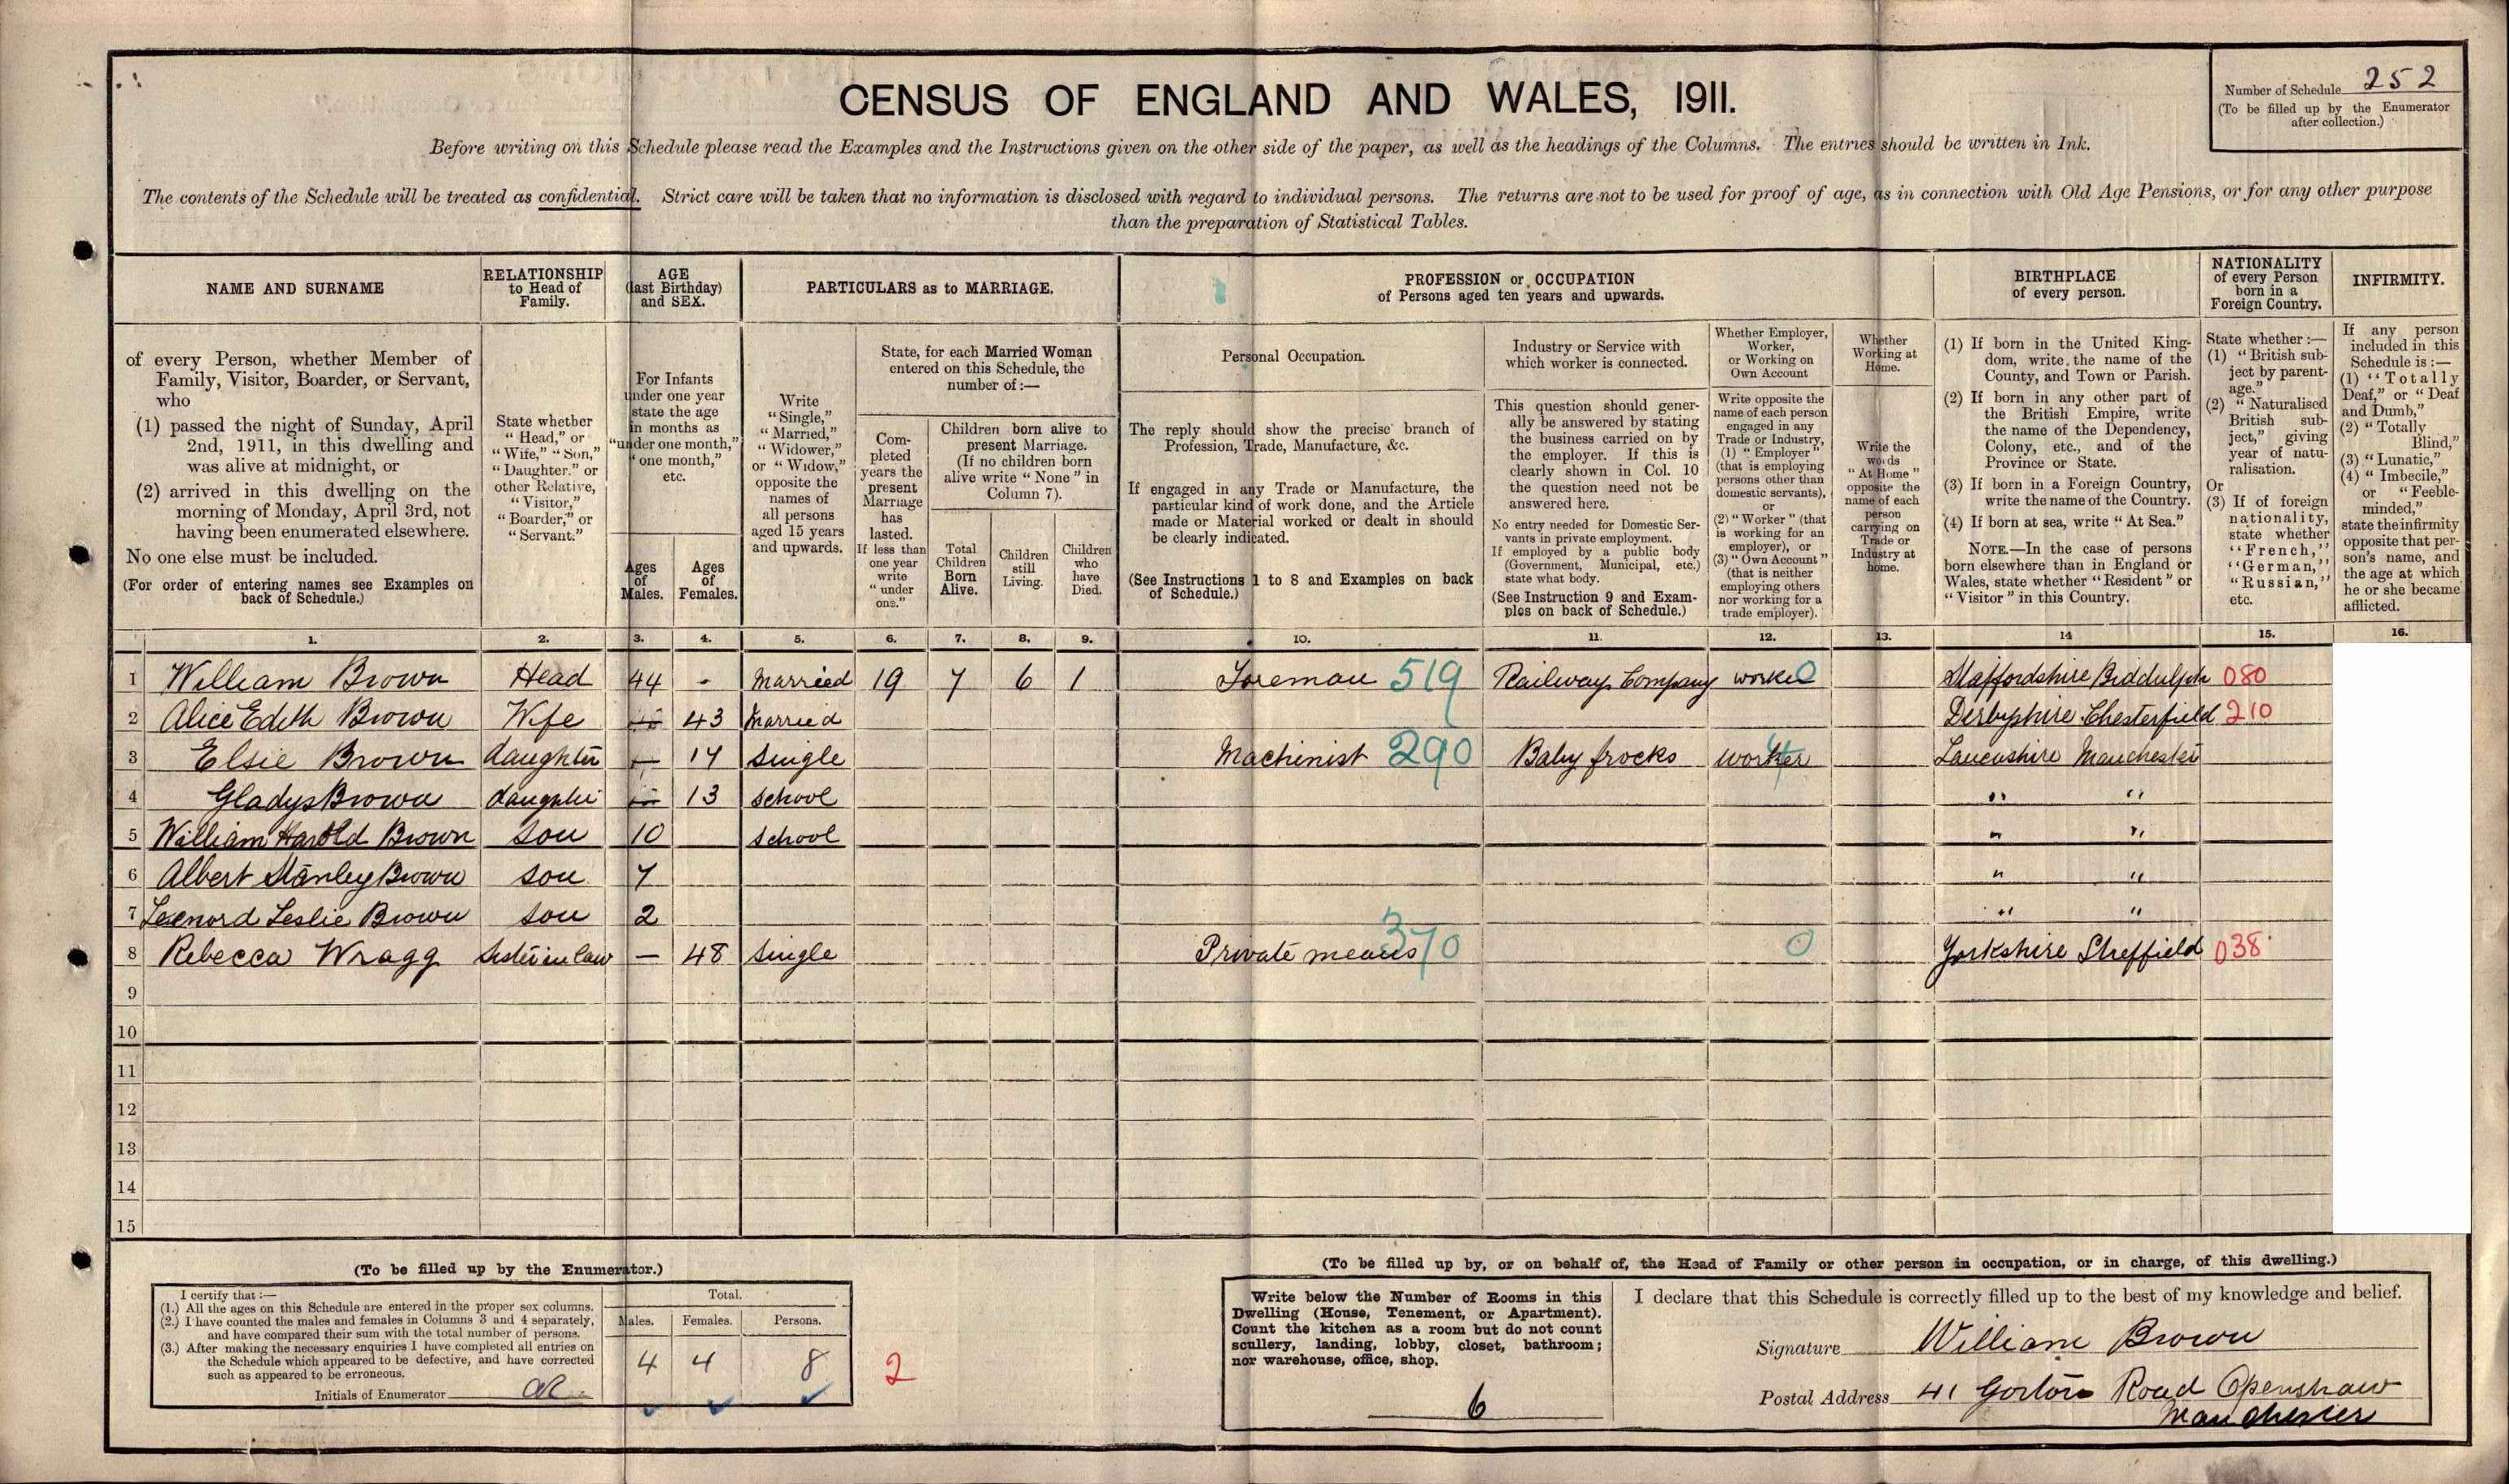 CENSUS OF ENGLAND AND WALES, 1911.
Number of Schedule 252
(To be filled up by the Enumerator
after collection.)
Before writing on this Schedule please read the Examples and the Instructions given on the other side of the paper, as well as the headings of the Columns. The entries should be written in Ink.
The contents of the Schedule will be treated as confidential. Strict care will be taken that no information is disclosed with regard to individual persons. The returns are not to be used for proof of age, as in connection with Old Age Pensions, or for any other purpose
than the preparation of Statistical Tables.
NAME AND SURNAME
of every Person, whether Member of
Family, Visitor, Boarder, or Servant,
who
(1) passed the night of Sunday, April
2nd, 1911, in this dwelling and
was alive at midnight, or
(2) arrived in this dwelling on the
morning of Monday, April 3rd, not
having been enumerated elsewhere.
No one else must be included.
(For order of entering names see Examples on
back of Schedule.)
RELATIONSHIP
to Head of
Family.
State whether
"Head," or
"Wife," "Son,"
"Daughter," or
other Relative,
"Visitor,"
"Boarder," or
"Servant."
AGE
(last Birthday)
and SEX.
For Infants
under one year
state the age
in months as
"under one month,"
"one month,"
etc.
Ages
of
Males.
Ages
of
Females.
PARTICULARS as to MARRIAGE.
Write
"Single,"
"Married,"
"Widower,"
or "Widow,"
opposite the
names of
all persons
aged 15 years
and upwards.
State, for each Married Woman
entered on this Schedule, the
number of:—
Com-
pleted
years the
present
Marriage
has
lasted.
If less than
one year
write
"under
one."
Children born alive to
present Marriage.
(If no children born
alive write "None" in
Column 7).
Total
Children
Born
Alive.
Children
still
Living.
Children
who
have
Died.
PROFESSION or OCCUPATION
of Persons aged ten years and upwards.
Personal Occupation.
The reply should show the precise branch of
Profession, Trade, Manufacture, &c.
If engaged in any Trade or Manufacture, the
particular kind of work done, and the Article
made or Material worked or dealt in should
be clearly indicated.
(See Instructions 1 to 8 and Examples on back
of Schedule.)
Industry or Service with
which worker is connected.
This question should gener-
ally be answered by stating
the business carried on by
the employer. If this is
clearly shown in Col. 10
the question need not be
answered here.
No entry needed for Domestic Ser-
vants in private employment.
If employed by a public body
(Government, Municipal, etc.)
state what body.
(See Instruction 9 and Exam-
ples on back of Schedule.)
Whether Employer,
Worker,
or Working on
Own Account
Write opposite the
name of each person
engaged in any
Trade or Industry,
(1) "Employer"
(that is employing
persons other than
domestic servants),
or
(2) "Worker" (that
is working for an
employer), or
(3) "Own Account"
(that is neither
employing others
nor working for a
trade employer).
Whether
Working at
Home.
Write the
words
"At Home"
opposite the
name of each
person
carrying on
Trade or
Industry at
home.
BIRTHPLACE
of every person.
(1) If born in the United King-
dom, write the name of the
County, and Town or Parish.
(2) If born in any other part of
the British Empire, write
the name of the Dependency,
Colony, etc., and of the
Province or State.
(3) If born in a Foreign Country,
write the name of the Country.
(4) If born at sea, write "At Sea."
NOTE.—In the case of persons
born elsewhere than in England or
Wales, state whether "Resident" or
"Visitor" in this Country.
NATIONALITY
of every Person
born in a
Foreign Country.
State whether:—
(1) "British sub-
ject by parent-
age."
(2) "Naturalised
British sub-
ject," giving
year of natu-
ralisation.
Or
(3) If of foreign
nationality,
state whether
"French,"
"German,"
"Russian,"
etc.
INFIRMITY.
If any person
included in this
Schedule is:—
(1) "Totally
Deaf," or "Deaf
and Dumb,"
(2) "Totally
Blind,"
(3) "Lunatic,"
(4) "Imbecile,"
or "Feeble-
minded,"
state the infirmity
opposite that per-
son's name, and
the age at which
he or she became
afflicted.
1. 2. 3. 4. 5. 6. 7. 8. 9. 10. 11. 12. 13. 14 15. 16.
1 William Brown Head 44 - Married 19 7 6 1 Foreman 519 Railway Company worker 0 Staffordshire Biddulph 080
2 Alice Edith Brown Wife 43 Married Derbyshire Chesterfield 210
3 Elsie Brown daughter — 17 Single Machinist 290 Baby frocks worker Lancashire Manchester
4 Gladys Brown daughter 13 school " "
5 William Harold Brown son 10 school " "
6 Albert Stanley Brown son 7 " "
7 Leonord Leslie Brown son 2 " "
8 Rebecca Wragg Sister in law — 48 Single Private means 370 0 Yorkshire Sheffield 038
9
10
11
12
13
14
15
(To be filled up by the Enumerator.)
I certify that:—
(1.) All the ages on this Schedule are entered in the proper sex columns.
(2.) I have counted the males and females in Columns 3 and 4 separately,
and have compared their sum with the total number of persons.
(3.) After making the necessary enquiries I have completed all entries on
the Schedule which appeared to be defective, and have corrected
such as appeared to be erroneous.
Initials of Enumerator
Total.
Males. Females. Persons.
4 4 8 2
(To be filled up by, or on behalf of, the Head of Family or other person in occupation, or in charge, of this dwelling.)
Write below the Number of Rooms in this
Dwelling (House, Tenement, or Apartment).
Count the kitchen as a room but do not count
scullery, landing, lobby, closet, bathroom;
nor warehouse, office, shop.
6
I declare that this Schedule is correctly filled up to the best of my knowledge and belief.
Signature William Brown
Postal Address 41 Gorton Road Openshaw
Manchester